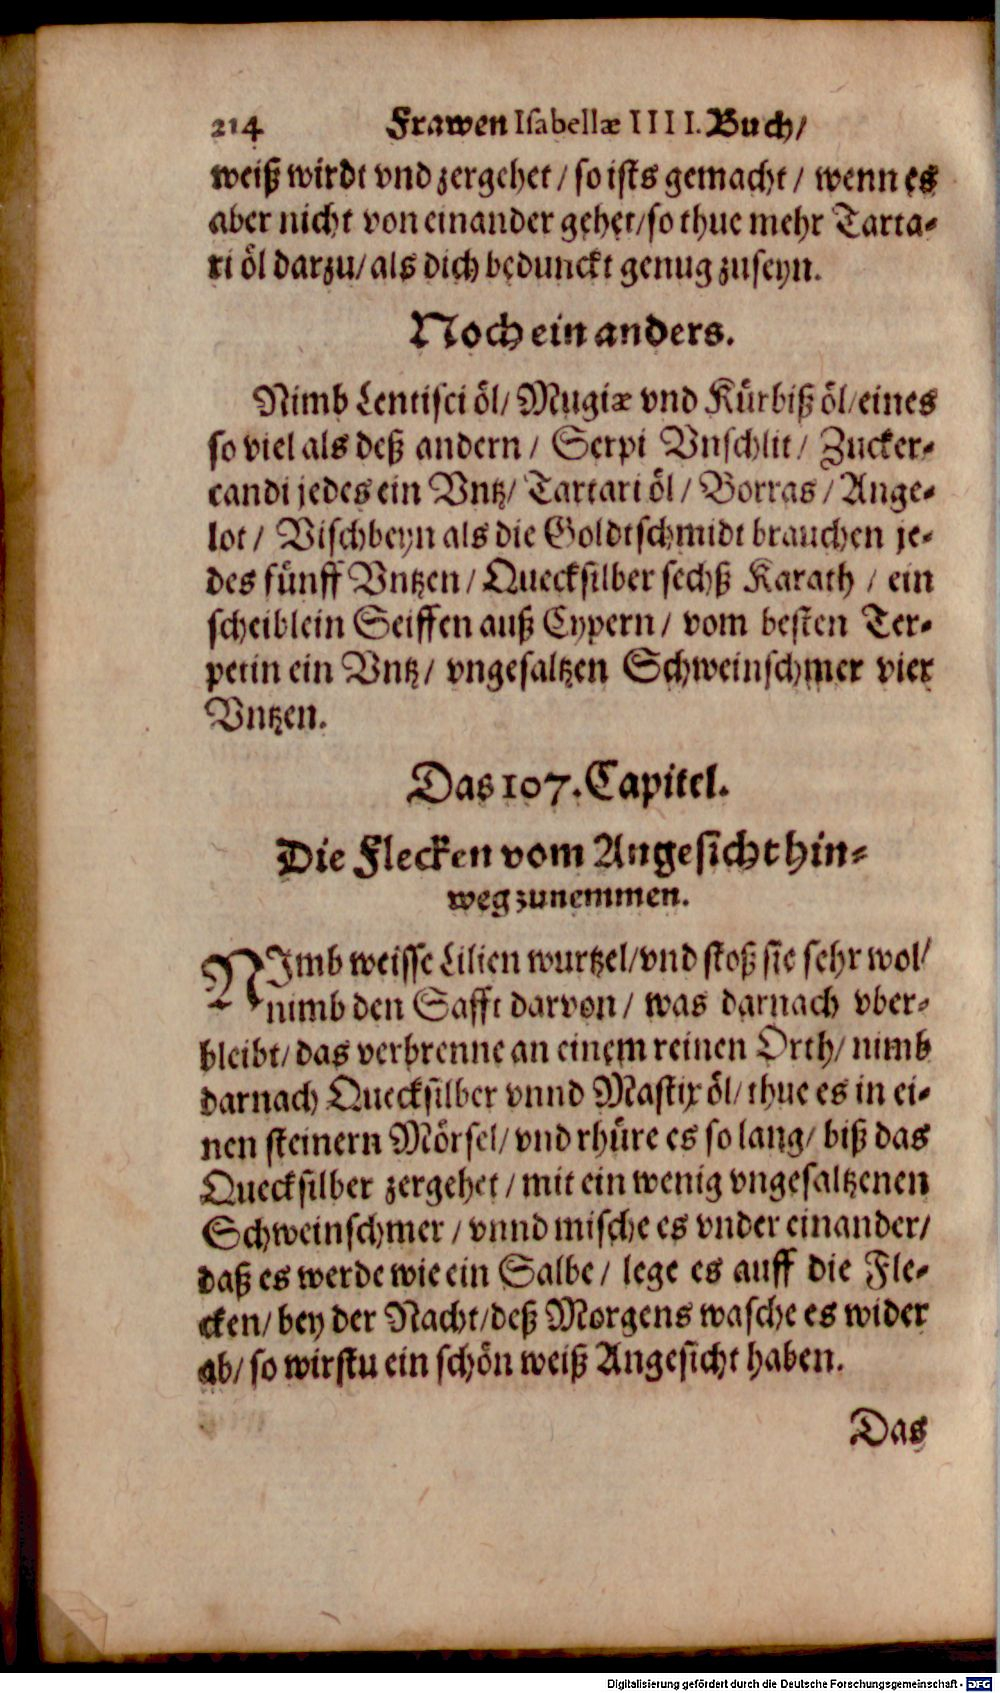 214 Frawen Isabellæ IIII. Buch/
weiß wirdt vnd zergehet / so ists gemacht / wenn es
aber nicht von einander gehet/so thue mehr Tarta-
ri öl darzu/als dich bedunckt genug zuseyn.
Noch ein anders.
Nimb Lentisci öl/ Mugiæ vnd Kürbiß öl/eines
so viel als deß andern / Serpi Vnschlit / Zucker-
candi jedes ein Vntz/ Tartari öl / Borras / Ange-
lot / Vischbeyn als die Goldtschmidt brauchen je-
des fünff Vntzen / Quecksilber sechß Karath / ein
scheiblein Seiffen auß Cypern / vom besten Ter-
petin ein Vntz / vngesaltzen Schweinschmer vier
Vntzen.
Das 107. Capitel.
Die Flecken vom Angesicht hin-
weg zunemmen.
NImb weisse Lilien wurtzel/vnd stoß sie sehr wol/
nimb den Safft darvon / was darnach vber-
bleibt/ das verbrenne an einem reinen Orth/ nimb
darnach Quecksilber vnnd Mastix öl/ thue es in ei-
nen steinern Mörsel/ vnd rhüre es so lang/ biß das
Quecksilber zergehet / mit ein wenig vngesaltzenen
Schweinschmer / vnnd mische es vnder einander/
daß es werde wie ein Salbe / lege es auff die Fle-
cken/ bey der Nacht/deß Morgens wasche es wider
ab/ so wirstu ein schön weiß Angesicht haben.
Das
Digitalisierung gefördert durch die Deutsche Forschungsgemeinschaft - DFG